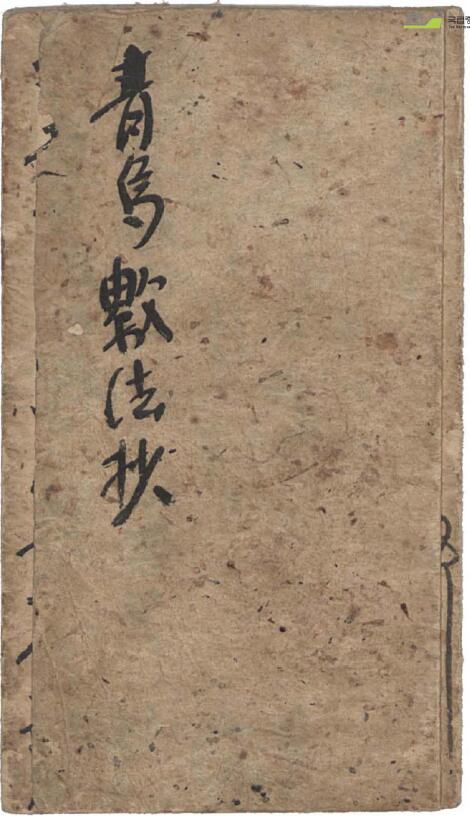 青烏數法抄